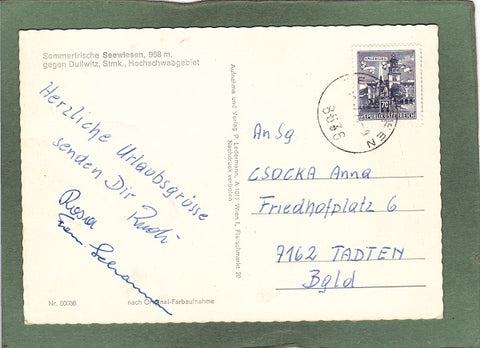 Sommerfrische Seewiesen, 968 m,
gegen Dullwitz, Stmk., Hochschwabgebiet
Herzliche Urlaubsgrüsse
senden Dir Rudi
Rosa
Nr. 60086
nach Original-Farbaufnahme
Aufnahme und Verlag P. Ledermann, A 1011 Wien I, Fleischmarkt 20
Nachdruck verboten
70
REPUBLIK ÖSTERREICH
8636
An Sg
CSOCKA Anna
Friedhofplatz 6
7162 TADTEN
Bgld